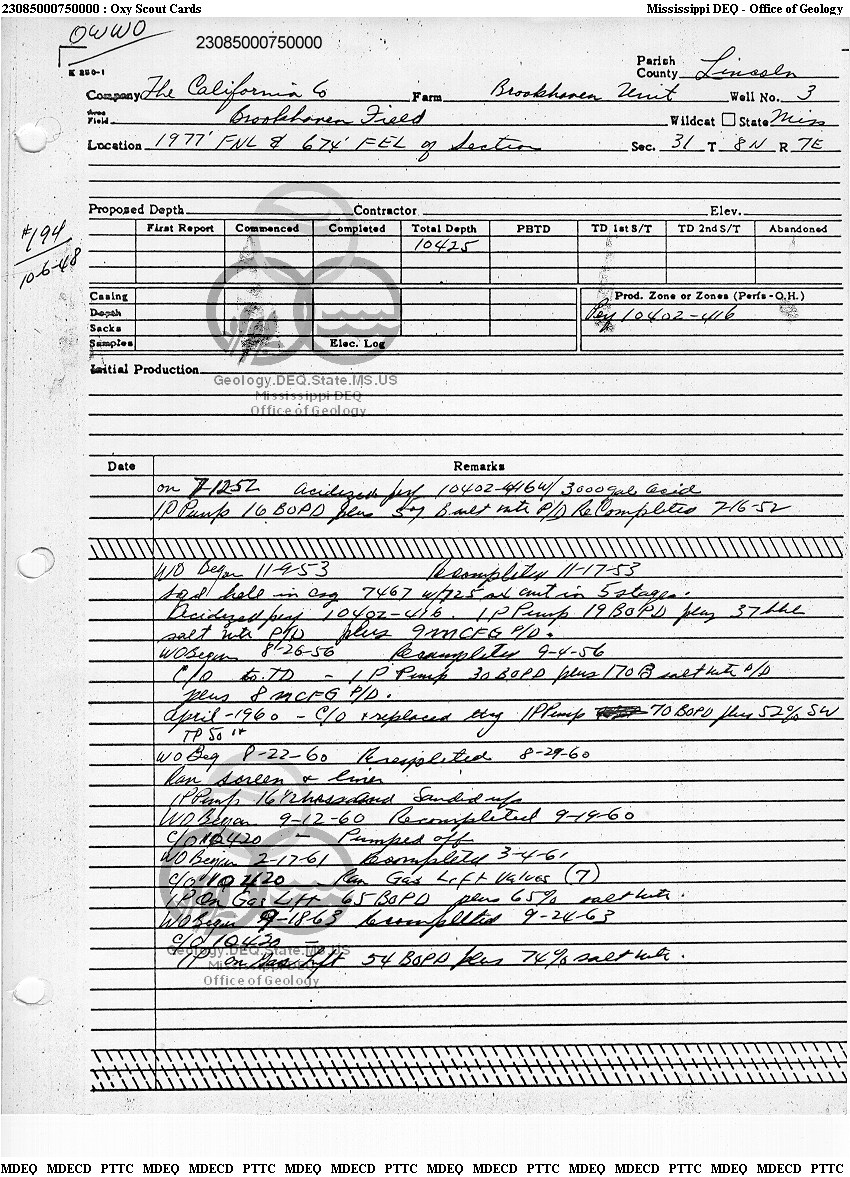 23085000750000 : Oxy Scout Cards Mississippi DEQ - Office of Geology
OWWO
23085000750000
K 250-1
Parish
County Lincoln
Company The California Co Farm Brookhaven Unit Well No. 3
Field Brookhaven Field Wildcat State Miss
Location 1977' FNL & 674' FEL of Section Sec. 31 T 8N R 7E
Proposed Depth Contractor Elev.
#194
10-6-48
First Report Commenced Completed Total Depth PBTD TD 1st S/T TD 2nd S/T Abandoned
10425
Casing Prod. Zone or Zones (Perfs - O.H.)
Depth Perf 10402-416
Sacks
Samples Elec. Log
Initial Production
Geology.DEQ.State.MS.US
Mississippi DEQ
Office of Geology
Date Remarks
on 7-12-52 acidized perf 10402-416 w/ 3000 gals acid
IP Pump 16 BOPD plus B salt wtr P/D ReCompleted 7-16-52
WO Began 11-9-53 Recompleted 11-17-53
Sqd hole in csg 7467 w/725 sx cmt in 5 stages.
Acidized perf 10402-416. IP Pump 19 BOPD plus 37 bbl
salt wtr P/D plus 9 MCFG P/D.
WO Began 8-26-56 Recompleted 9-4-56
C/O to TD - IP Pump 30 BOPD plus 170 B salt wtr P/D
plus 8 MCFG P/D.
April-1960 - C/O & replaced IP Pump 70 BOPD plus 52% SW
TP 50#
WO Beg 8-22-60 Recompleted 8-29-60
Ran screen & liner
IP Pump 16 and Sanded up
WO Began 9-12-60 Recompleted 9-19-60
C/O 10420 - Pumped off
WO Began 2-17-61 Recompleted 3-4-61
C/O 10420 Ran Gas Lift Valves (7)
IP On Gas Lift 65 BOPD plus 65% salt wtr.
WO Began 9-18-63 Recompleted 9-24-63
C/O 10420 -
IP on Gas Lift 54 BOPD plus 74% salt wtr.
Geology.DEQ.State.MS.US
Mississippi DEQ
Office of Geology
MDEQ MDECD PTTC MDEQ MDECD PTTC MDEQ MDECD PTTC MDEQ MDECD PTTC MDEQ MDECD PTTC MDEQ MDECD PTTC